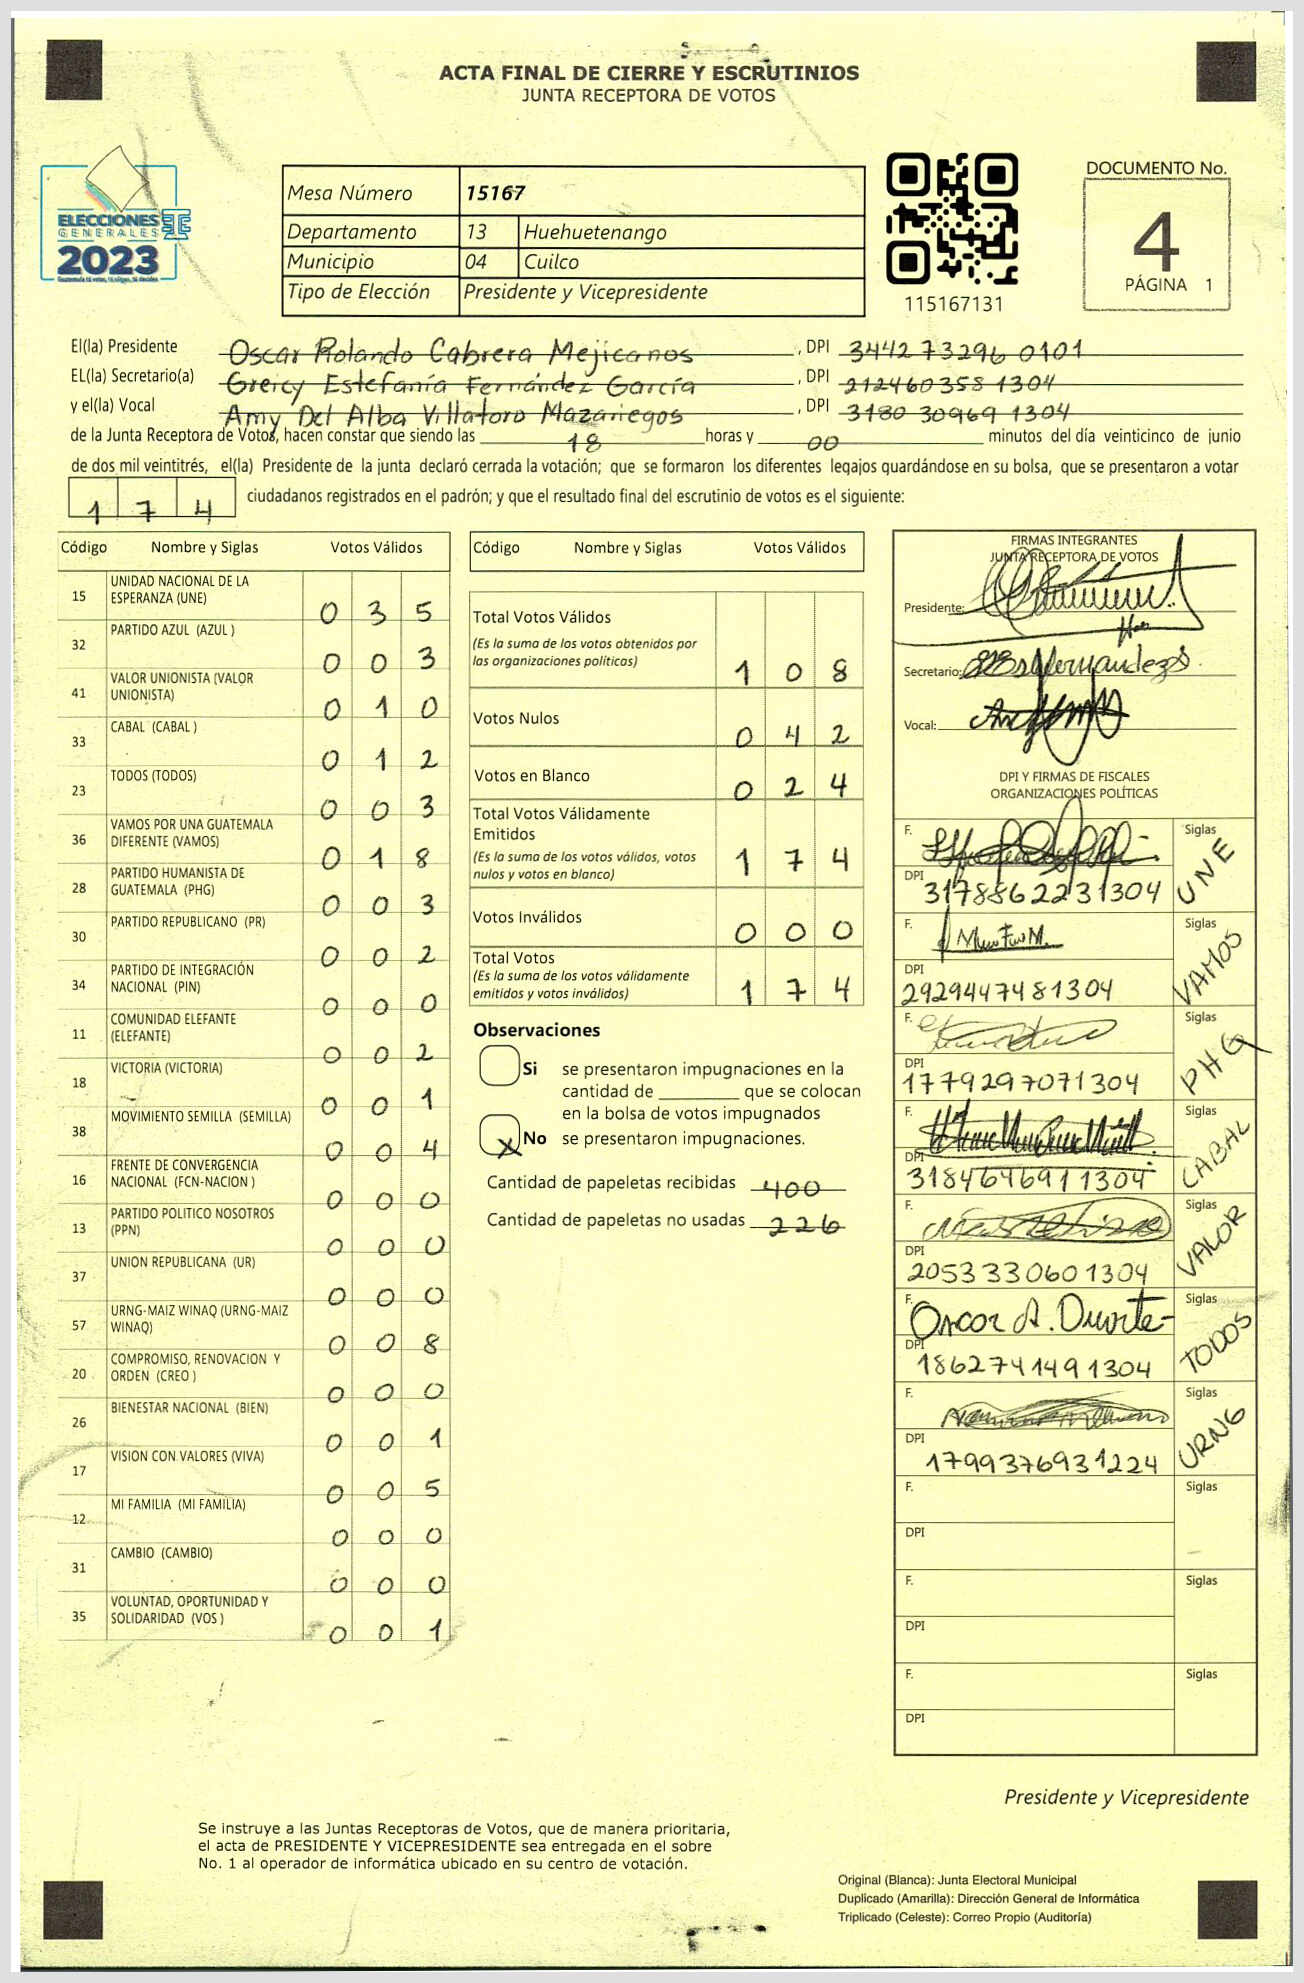 ACTA FINAL DE CIERRE Y ESCRUTINIOS
JUNTA RECEPTORA DE VOTOS
ELECCIONES
GENERALES
2023
Mesa Número 15167
Departamento 13 Huehuetenango
Municipio 04 Cuilco
Tipo de Elección Presidente y Vicepresidente
115167131
DOCUMENTO No.
4
PÁGINA 1
El(la) Presidente Oscar Rolando Cabrera Mejicanos, DPI 3442 73296 0101
EL(la) Secretario(a) Greicy Estefanía Fernández García, DPI 212460358 1304
y el(la) Vocal Amy Del Alba Villatoro Mazariegos, DPI 3180 30969 1304
de la Junta Receptora de Votos, hacen constar que siendo las 18 horas y 00 minutos del día veinticinco de junio
de dos mil veintitrés, el(la) Presidente de la junta declaró cerrada la votación; que se formaron los diferentes legajos guardándose en su bolsa, que se presentaron a votar
174 ciudadanos registrados en el padrón; y que el resultado final del escrutinio de votos es el siguiente:
Código Nombre y Siglas Votos Válidos
15 UNIDAD NACIONAL DE LA ESPERANZA (UNE) 0 3 5
32 PARTIDO AZUL (AZUL ) 0 0 3
41 VALOR UNIONISTA (VALOR UNIONISTA) 0 1 0
33 CABAL (CABAL ) 0 1 2
23 TODOS (TODOS) 0 0 3
36 VAMOS POR UNA GUATEMALA DIFERENTE (VAMOS) 0 1 8
28 PARTIDO HUMANISTA DE GUATEMALA (PHG) 0 0 3
30 PARTIDO REPUBLICANO (PR) 0 0 2
34 PARTIDO DE INTEGRACIÓN NACIONAL (PIN) 0 0 0
11 COMUNIDAD ELEFANTE (ELEFANTE) 0 0 2
18 VICTORIA (VICTORIA) 0 0 1
38 MOVIMIENTO SEMILLA (SEMILLA) 0 0 4
16 FRENTE DE CONVERGENCIA NACIONAL (FCN-NACION ) 0 0 0
13 PARTIDO POLITICO NOSOTROS (PPN) 0 0 0
37 UNION REPUBLICANA (UR) 0 0 0
57 URNG-MAIZ WINAQ (URNG-MAIZ WINAQ) 0 0 8
20 COMPROMISO, RENOVACION Y ORDEN (CREO ) 0 0 0
26 BIENESTAR NACIONAL (BIEN) 0 0 1
17 VISION CON VALORES (VIVA) 0 0 5
12 MI FAMILIA (MI FAMILIA) 0 0 0
31 CAMBIO (CAMBIO) 0 0 0
35 VOLUNTAD, OPORTUNIDAD Y SOLIDARIDAD (VOS ) 0 0 1
Código Nombre y Siglas Votos Válidos
Total Votos Válidos
(Es la suma de los votos obtenidos por
las organizaciones políticas) 1 0 8
Votos Nulos 0 4 2
Votos en Blanco 0 2 4
Total Votos Válidamente
Emitidos
(Es la suma de los votos válidos, votos
nulos y votos en blanco) 1 7 4
Votos Inválidos 0 0 0
Total Votos
(Es la suma de los votos válidamente
emitidos y votos inválidos) 1 7 4
Observaciones
Si se presentaron impugnaciones en la
cantidad de ________ que se colocan
en la bolsa de votos impugnados
X No se presentaron impugnaciones.
Cantidad de papeletas recibidas 400
Cantidad de papeletas no usadas 226
FIRMAS INTEGRANTES
JUNTA RECEPTORA DE VOTOS
Presidente:
Secretario:
Vocal:
DPI Y FIRMAS DE FISCALES
ORGANIZACIONES POLÍTICAS
F. Siglas UNE
DPI 3178862231304
F. Siglas VAMOS
DPI 2929447481304
F. Siglas PHG
DPI 1779297071304
F. Siglas CABAL
DPI 3184646911304
F. Siglas VALOR
DPI 2053330601304
F. Oscar A. Duarte Siglas TODOS
DPI 1862741491304
F. Siglas URNG
DPI 1799376931224
F. Siglas
DPI
F. Siglas
DPI
F. Siglas
DPI
Presidente y Vicepresidente
Se instruye a las Juntas Receptoras de Votos, que de manera prioritaria,
el acta de PRESIDENTE Y VICEPRESIDENTE sea entregada en el sobre
No. 1 al operador de informática ubicado en su centro de votación.
Original (Blanca): Junta Electoral Municipal
Duplicado (Amarilla): Dirección General de Informática
Triplicado (Celeste): Correo Propio (Auditoría)